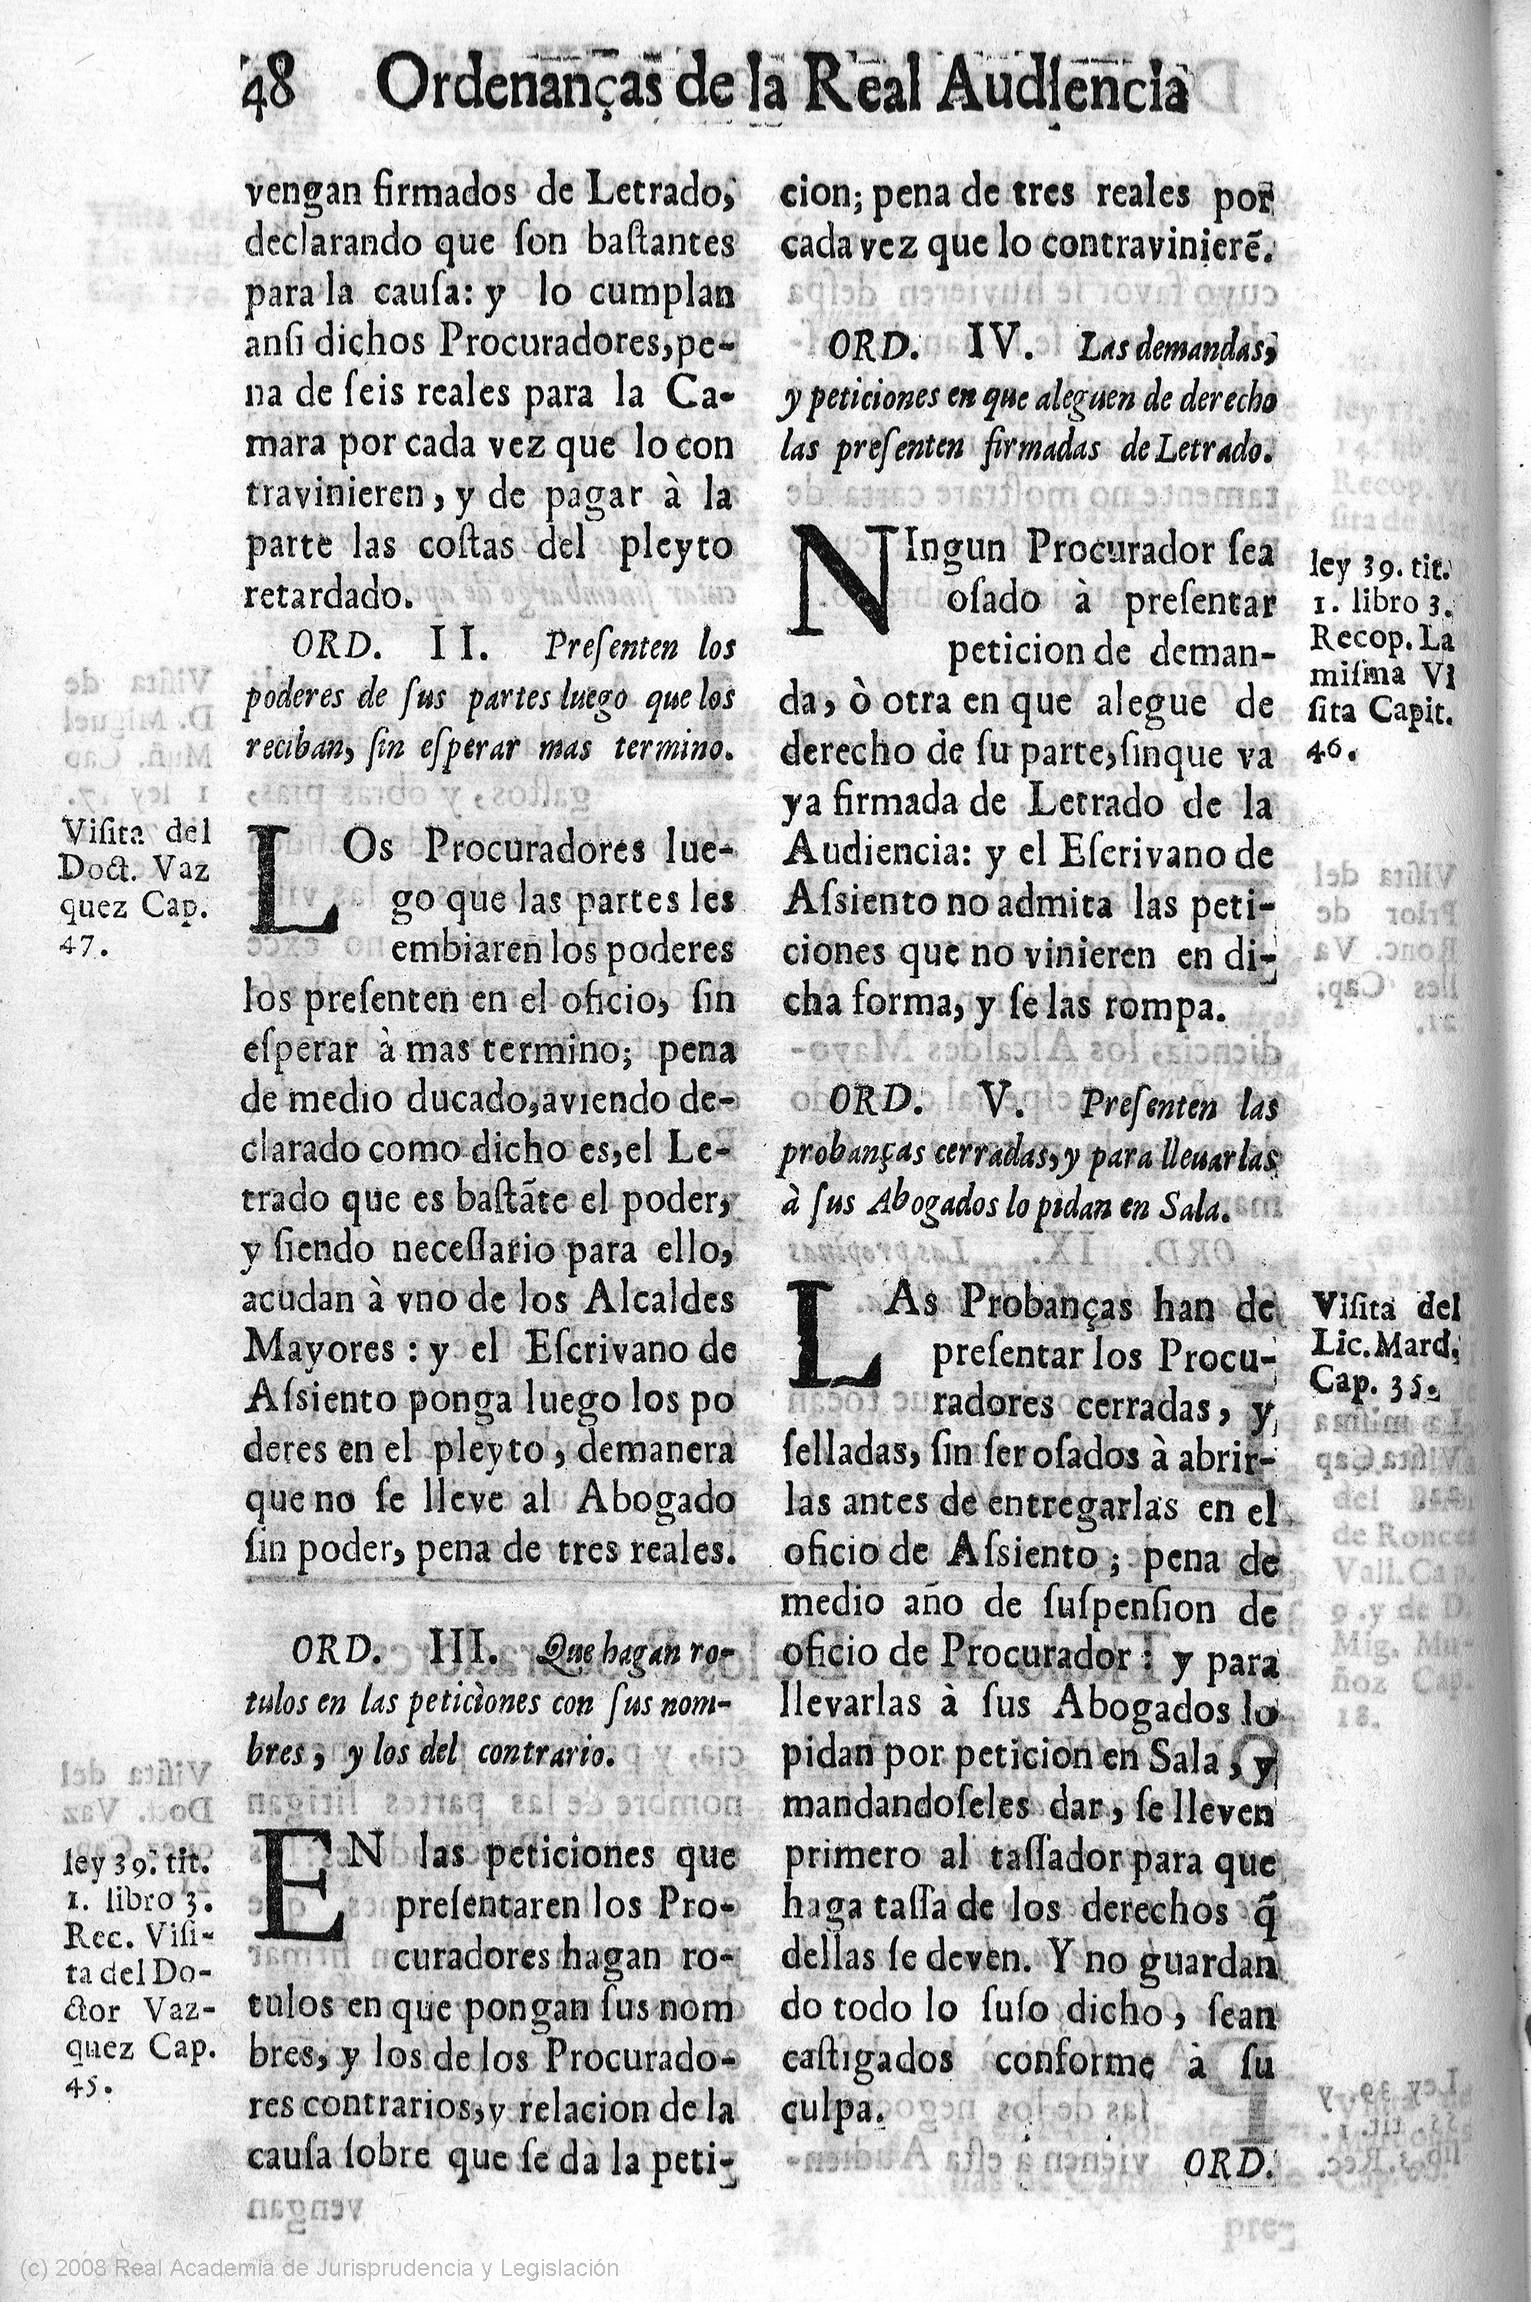 48 Ordenanças de la Real Audiencia
vengan firmados de Letrado,
declarando que ſon baſtantes
para la cauſa: y lo cumplan
anſi dichos Procuradores,pe-
na de ſeis reales para la Ca-
mara por cada vez que lo con
travinieren, y de pagar à la
parte las coſtas del pleyto
retardado.
ORD. II. Preſenten los
poderes de ſus partes luego que los
reciban, ſin eſperar mas termino.
Viſita del
Doct. Vaz
quez Cap.
47.
LOs Procuradores lue-
go que las partes les
embiaren los poderes
los preſenten en el oficio, ſin
eſperar à mas termino; pena
de medio ducado,aviendo de-
clarado como dicho es,el Le-
trado que es baſtãte el poder,
y ſiendo neceſſario para ello,
acudan à vno de los Alcaldes
Mayores : y el Eſcrivano de
Aſsiento ponga luego los po
deres en el pleyto, demanera
que no ſe lleve al Abogado
ſin poder, pena de tres reales.
ORD. III. Que hagan ro-
tulos en las peticiones con ſus nom-
bres, y los del contrario.
ley 39. tit.
1. libro 3.
Rec. Viſi-
ta del Do-
ctor Vaz-
quez Cap.
45.
EN las peticiones que
preſentaren los Pro-
curadores hagan ro-
tulos en que pongan ſus nom
bres, y los de los Procurado-
res contrarios,y relacion de la
cauſa ſobre que ſe dà la peti-
cion; pena de tres reales por
cada vez que lo contravinierẽ.
ORD. IV. Las demandas,
y peticiones en que aleguen de derecho
las preſenten firmadas de Letrado.
NIngun Procurador ſea
oſado à preſentar
peticion de deman-
da, ò otra en que alegue de
derecho de ſu parte,ſinque va
ya firmada de Letrado de la
Audiencia: y el Eſcrivano de
Aſsiento no admita las peti-
ciones que no vinieren en di-
cha forma, y ſe las rompa.
ley 39. tit.
1. libro 3.
Recop. La
miſma Vi
ſita Capit.
46.
ORD. V. Preſenten las
probanças cerradas, y para llevarlas
à ſus Abogados lo pidan en Sala.
LAs Probanças han de
preſentar los Procu-
radores cerradas, y
ſelladas, ſin ſer oſados à abrir-
las antes de entregarlas en el
oficio de Aſsiento; pena de
medio año de ſuſpenſion de
oficio de Procurador : y para
llevarlas à ſus Abogados lo
pidan por peticion en Sala, y
mandandoſeles dar, ſe lleven
primero al taſſador para que
haga taſſa de los derechos q̃
dellas ſe deven. Y no guardan
do todo lo ſuſo dicho, ſean
caſtigados conforme à ſu
culpa.
Viſita del
Lic. Mard.
Cap. 35.
ORD.
(c) 2008 Real Academia de Jurisprudencia y Legislación